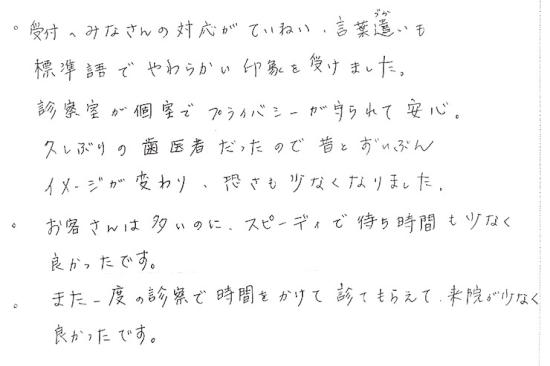 。受付、みなさんの対応がていねい、言葉遣(づか)いも
標準語でやわらかい印象を受けました。
診察室が個室でプライバシーが守られて安心。
久しぶりの歯医者だったので昔とずいぶん
イメージが変わり、恐さも少なくなりました。
。お客さんは多いのに、スピーディで待ち時間も少なく
良かったです。
。また一度の診察で時間をかけて診てもらえて、来院が少なく
良かったです。